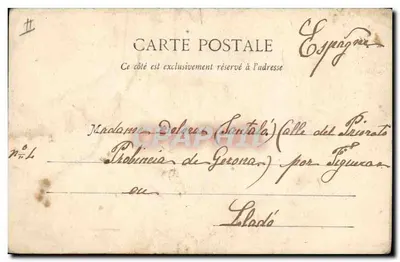 Espagne
CARTE POSTALE
Ce côté est exclusivement réservé à l'adresse
Madame Dolores (Santaló) Calle del Priorato
nº 4
Probincia de Gerona) por Figueras
ou
Lladó